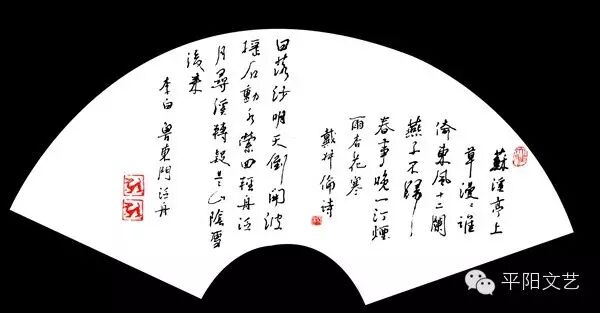 蘇溪亭上
草漫々誰
倚東風十二闌
燕子不歸
春事晚一汀煙
雨杏花寒
戴叔倫詩
日落沙明天倒開波
摇石動水縈回輕舟泛
月尋溪轉疑是山陰雪
後来
李白 魯東門泛舟
平阳文艺